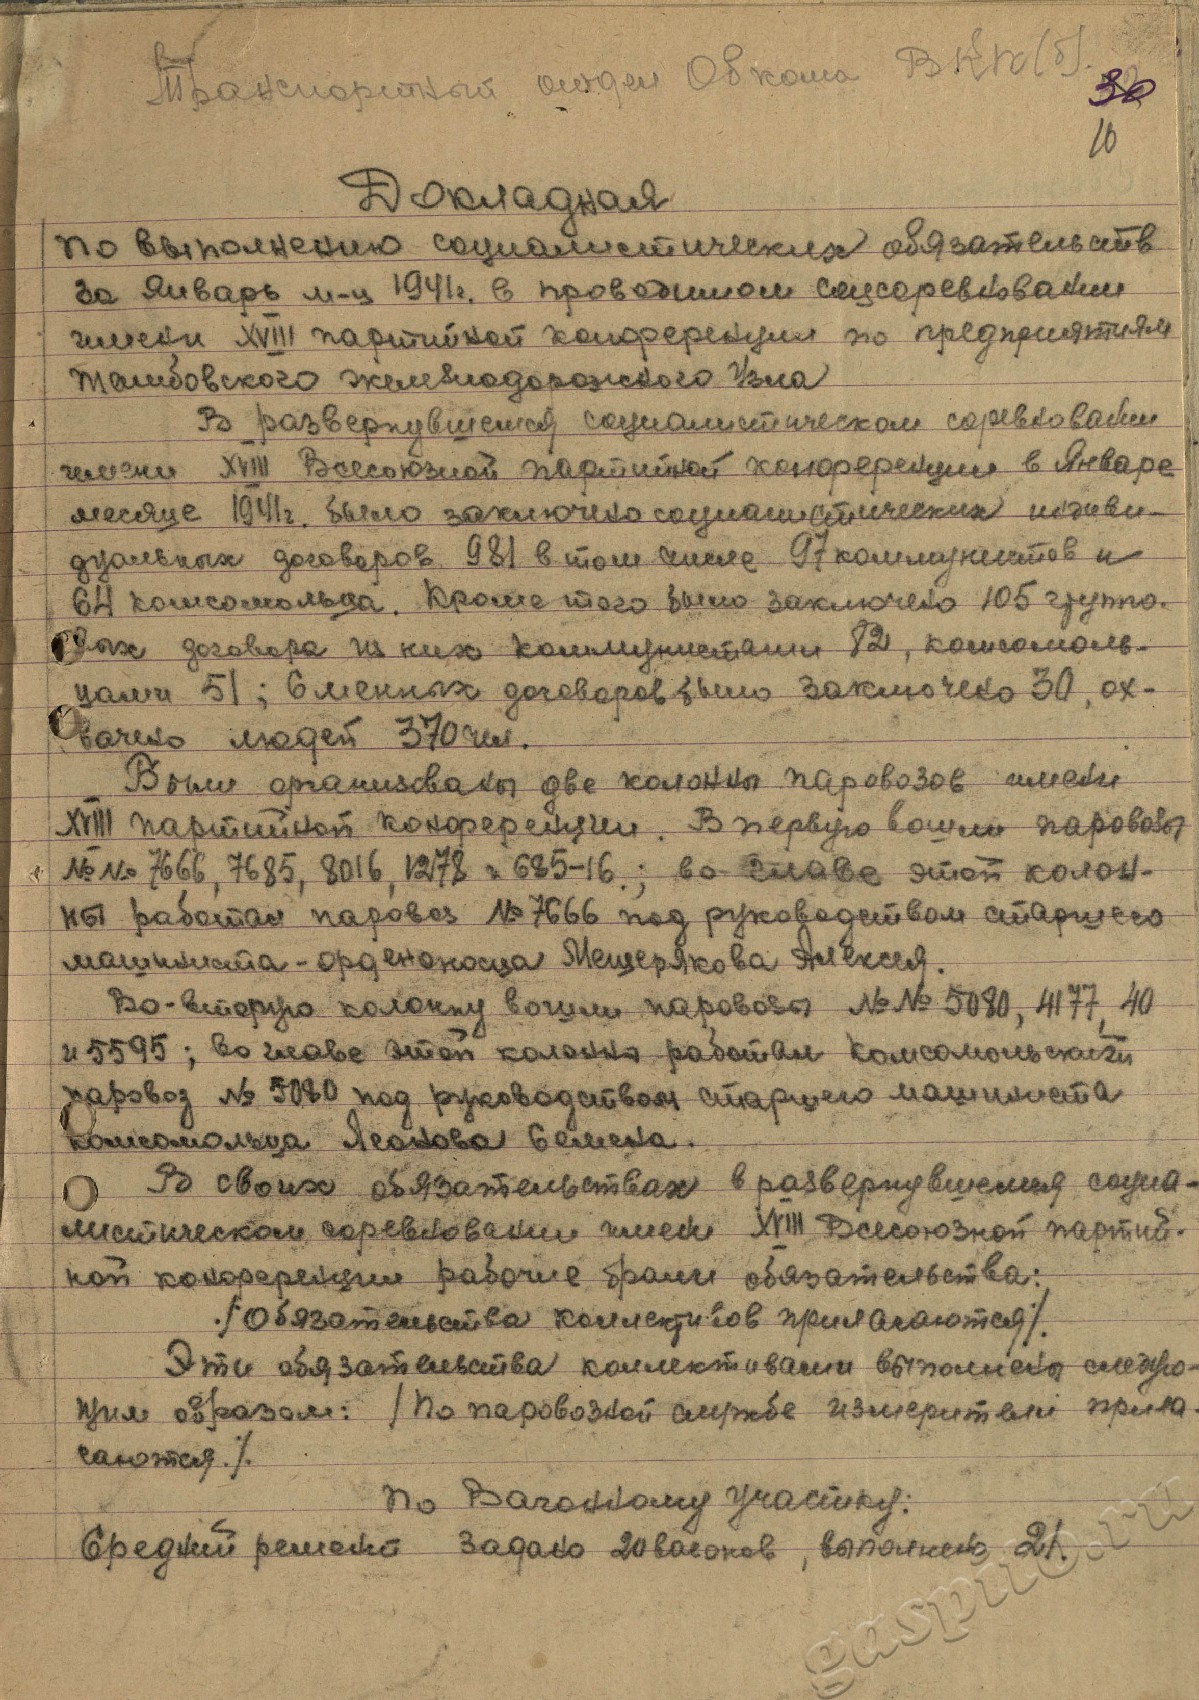 В Транспортный отдел Обкома ВКП(б).
30
10
Докладная
по выполнению социалистических обязательств
за Январь м-ц 1941г. в проводимом соцсоревновании
имени XVIII партийной конференции по предприятиям
Тамбовского железнодорожного Узла
В развернувшемся социалистическом соревновании
имени XVIII Всесоюзной партийной конференции в Январе
месяце 1941г. было заключено социалистических индиви-
дуальных договоров 981 в том числе 97 коммунистов и
64 комсомольца. Кроме того было заключено 105 группо-
вых договора из них коммунистами 82, комсомоль-
цами 51; Сменных договоров было заключено 30, ох-
вачено людей 370 чел.
Были организованы две колонны паровозов имени
XVIII партийной конференции. В первую вошли паровозы
№№ 7666, 7685, 8016, 1278 и 685-16.; во главе этой колон-
ны работал паровоз № 7666 под руководством старшего
машиниста-орденоносца Мещерякова Алексея.
Во-вторую колонну вошли паровозы №№ 5080, 4177, 40
и 5595; во главе этой колонны работал комсомольский
паровоз № 5080 под руководством старшего машиниста
комсомольца Леонова Семена.
В своих обязательствах в развернувшемся социа-
листическом соревновании имени XVIII Всесоюзной партий-
ной конференции рабочие брали обязательства:
./Обязательства коллективов прилагаются/.
Эти обязательства коллективами выполнены следую-
щим образом: /По паровозной службе измерители прила-
гаются./.
По Вагонному участку:
Средний ремонт задано 20 вагонов, выполнено 21.
gaspito.ru